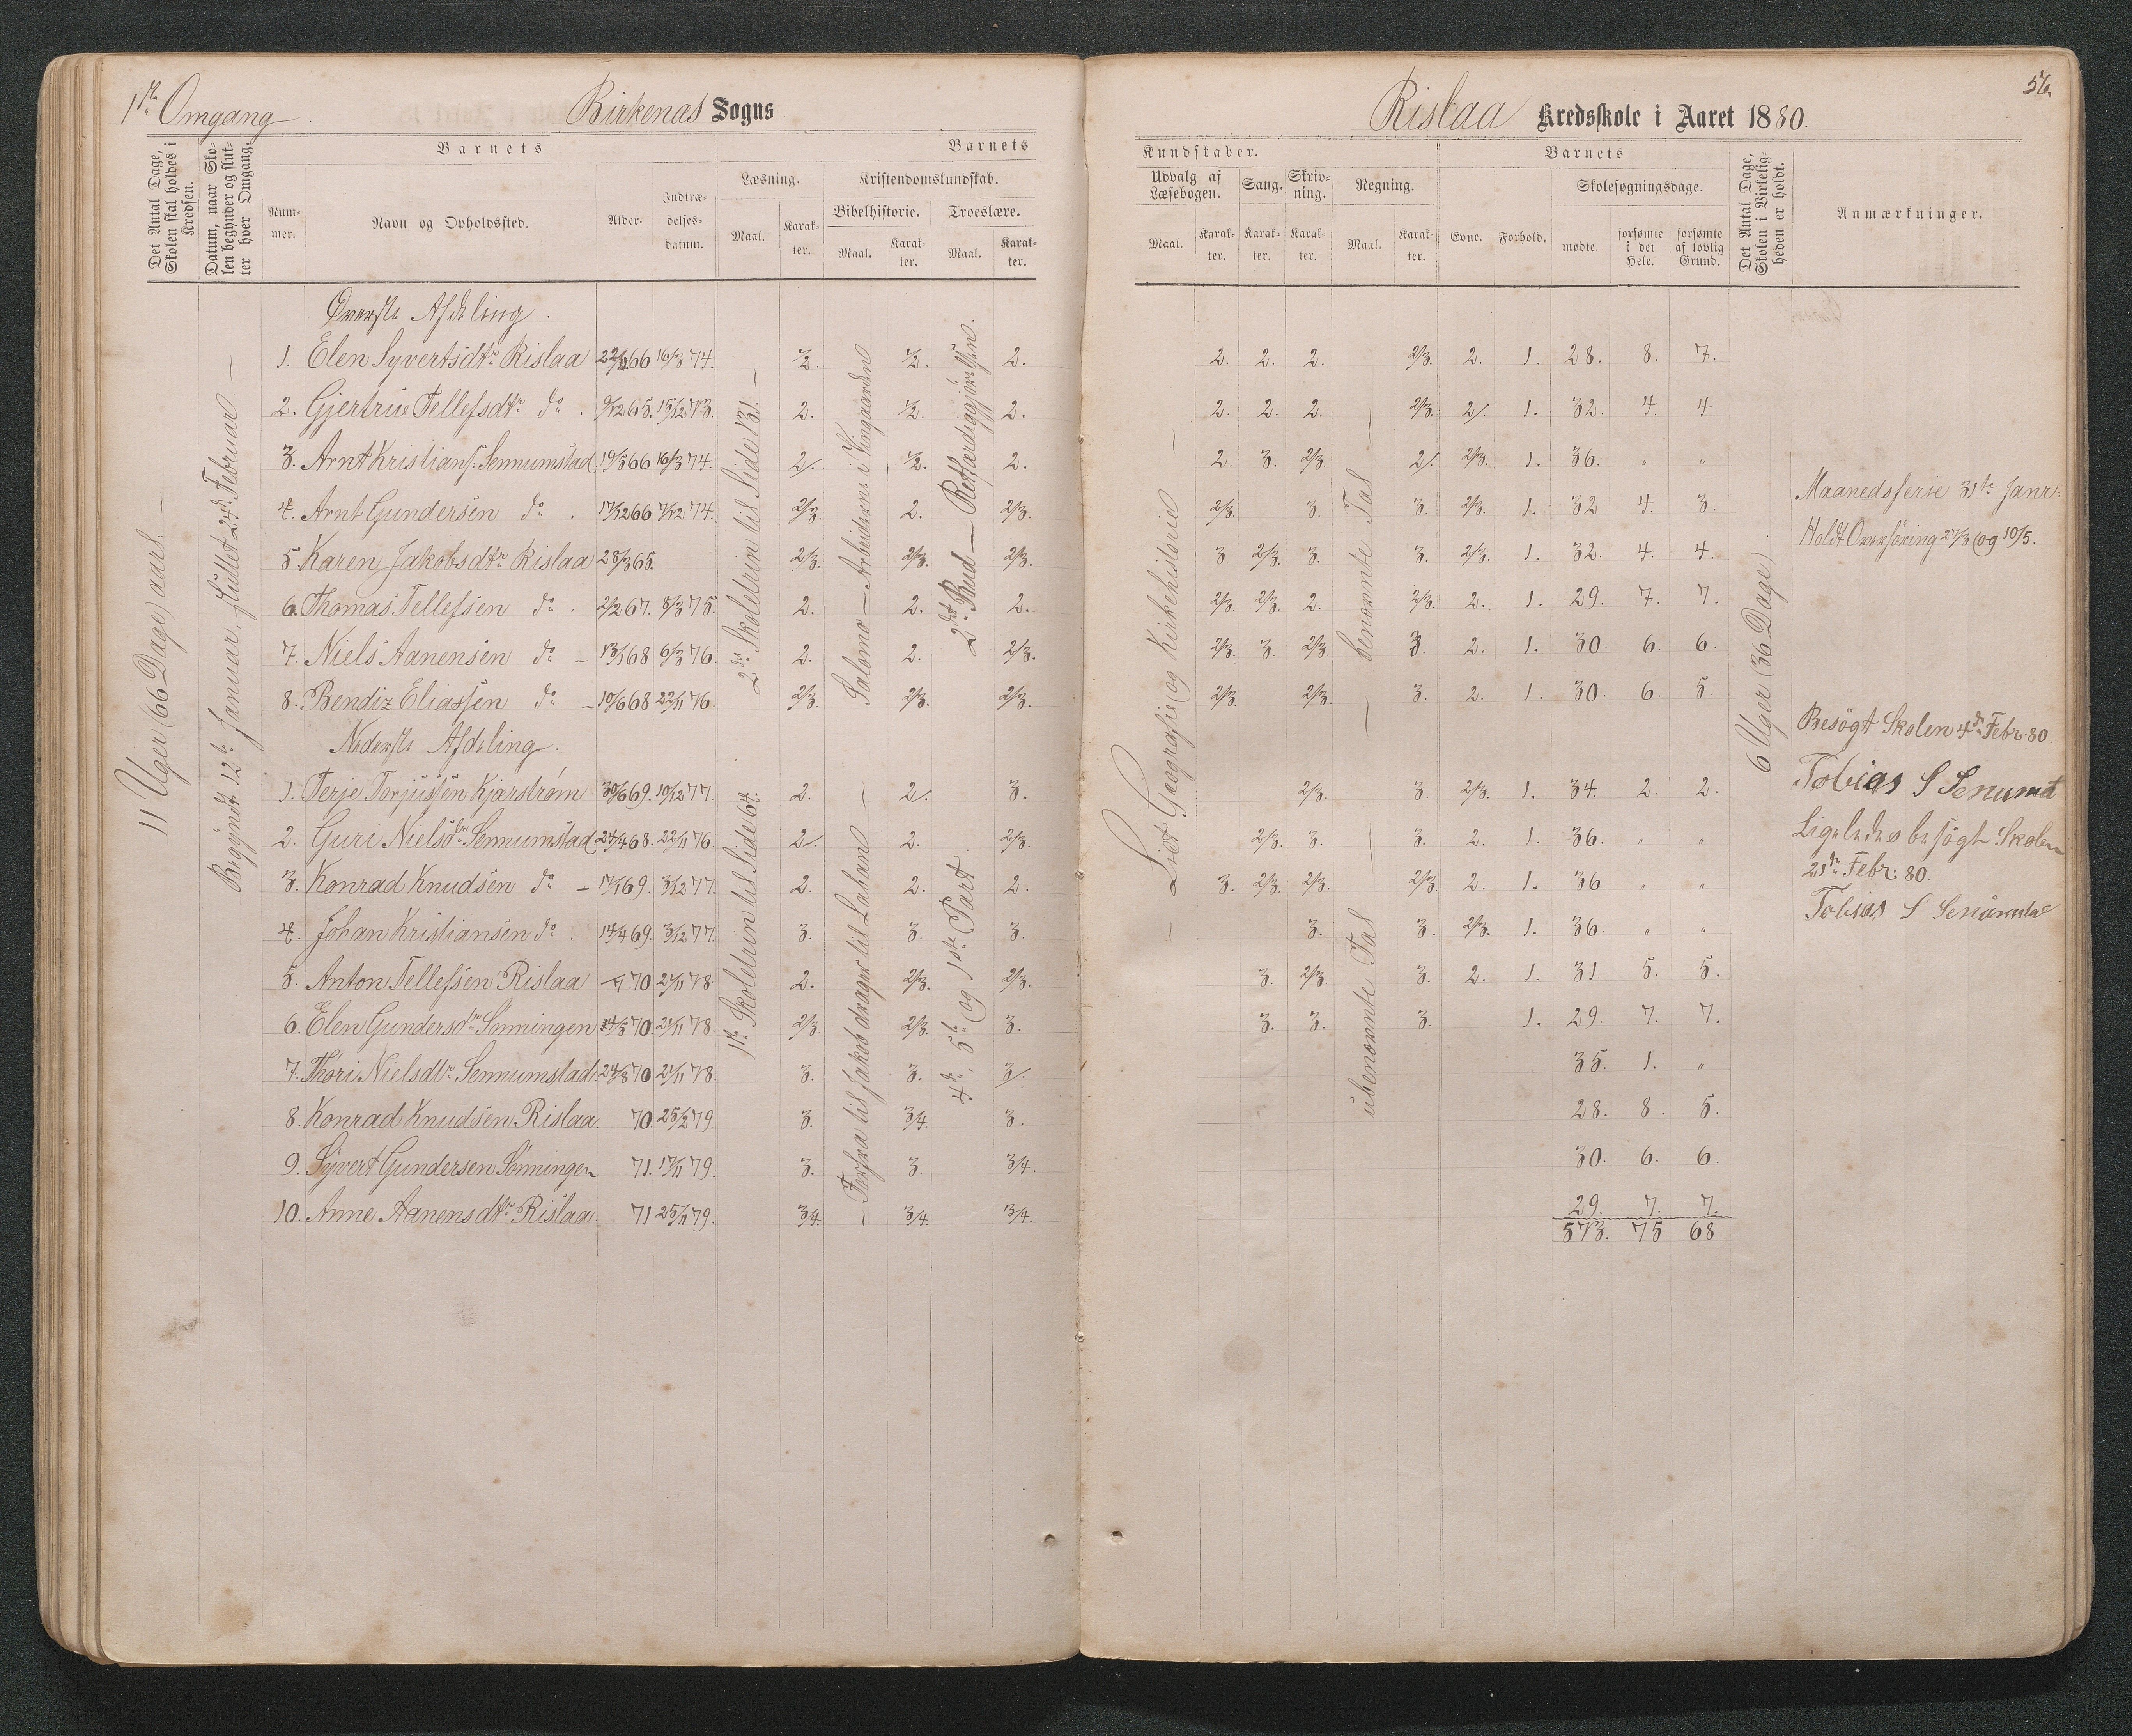 1ste Omgang.
Birkenæs Sogns
Det Antal Dage, Skolen skal holdes i Kredsen.
Datum, naar Skolen begynder og slutter hver Omgang.
Barnets
Barnets
Nummer.
Navn og Opholdssted.
Alder.
Indtrædelsesdatum.
Læsning.
Kristendomskundskab.
Maal.
Karakter.
Bibelhistorie.
Troeslære.
Maal.
Karakter.
Maal.
Karakter.
11 Uger (66 Dage) aarl. —
Begyndt 12te Januar, sluttet 24de Februar —
2den Skoletrin til Side 131. —
Salomo — Arbeiderne i Vingaarden
2det Bud — Retfærdiggjørelsen.
Øverste Afdeling.
1. Elen Syvertsdtr Rislaa 22/11 66 16/3 74. 1/2. 1/2. 2.
2. Gjertrue Tellefsdtr do. 9/12 65. 15/12 73. 2. 1/2. 2.
3. Arnt Kristians. Sennumstad 19/5 66 16/3 74. 2/. 1/2. 2.
4. Arnt Gundersen do. 17/12 66 7/12 74. 2/3. 2. 2/3.
5. Karen Jakobsdtr Rislaa 28/3 65. 2/3. 2/3. 2/3.
6. Thomas Tellefsen do. 2/2 67. 8/3 75. 2. 2. 2.
7. Niels Aanensen do — 13/1 68 6/3 76. 2. 2. 2/3.
8. Bendix Eliassen do — 10/6 68 22/11 76. 2/3. 2/3. 2/3.
Nederste Afdeling.
1ste Skoletrin til Side 64.
— Forfra til Jakob drager til Laban —
4de, 5te og 1ste Part.
1. Terje Torjussen Kjærstrøm 30/6 69. 10/12 77. 2. 2/. 3.
2. Guri Nielsdtr Sennumstad 24/4 68. 22/11 76. 2/. 2. 2/3.
3. Konrad Knudsen do — 17/1 69. 3/12 77. 2. 2. 2.
4. Johan Kristiansen do. 14/4 69. 3/12 77. 3. 3. 3.
5. Anton Tellefsen Rislaa 70 21/11 78. 2. 2/3. 2/3.
6. Elen Gundersdtr Sønningen 14/5 70. 21/11 78. 2/3. 2/3. 3.
7. Thori Nielsdtr Sennumstad 24/8 70 21/11 78. 3. 3. 3/.
8. Konrad Knudsen Rislaa. 70. 25/2 79. 3. 3/4. 3.
9. Syvert Gundersen Sønningen 71. 17/11 79. 3. 3. 3/4.
10. Anne Aanensdtr Rislaa. 71 25/11 79. 3/4. 3/4. 3/4.
56.
Rislaa Kredsskole i Aaret 1880.
Kundskaber.
Barnets
Udvalg af Læsebogen.
Sang.
Skrivning.
Regning.
Skolesøgningsdage.
Det Antal Dage, Skolen i Virkeligheden er holdt.
Anmærkninger.
Maal.
Karakter.
Karakter.
Karakter.
Maal.
Karakter.
Evne.
Forhold.
mødte.
forsømte i det Hele.
forsømte af lovlig Grund.
— Lidt Geografie og Kirkehistorie —
— benævnte Tal —
ubenævnte Tal —
6 Uger (36 Dage)
2. 2. 2. 2/3. 2. 1. 28. 8. 7.
2. 2. 2. 2/3. 2/. 1. 32. 4. 4
2. 3. 2/3. 2/. 2/3. 1. 36. " "
2/3. 3. 3. 2/3. 1. 32 4. 3.
3. 2/3. 3. 3. 2/3. 1. 32. 4. 4.
2/3. 2/3. 2. 2/3. 2. 1. 29. 7. 7.
2/3. 3. 2/3. 3. 2. 1. 30. 6. 6.
2/3. 2/3. 3. 2. 1. 30. 6. 5.
2/3. 3. 2/3. 1. 34. 2. 2.
2/3. 3. 3. 2. 1. 36. " "
3. 2/3. 2/3. 2/3. 2. 1. 36. " "
3. 3. 2/3. 1. 36. " "
3. 2/3. 3. 2. 1. 31. 5. 5.
3. 3. 3. 1. 29. 7. 7.
35. 1. "
28. 8. 5.
30. 6. 6.
29. 7. 7.
573. 75 68
Maanedsferie 31te Janr.
Holdt Overhøring 27/3 og 10/5.
Besøgt Skolen 4de Febr. 80.
Tobias S Senumd
Ligeledes besøgt Skolen
21de Febr: 80.
Tobias S